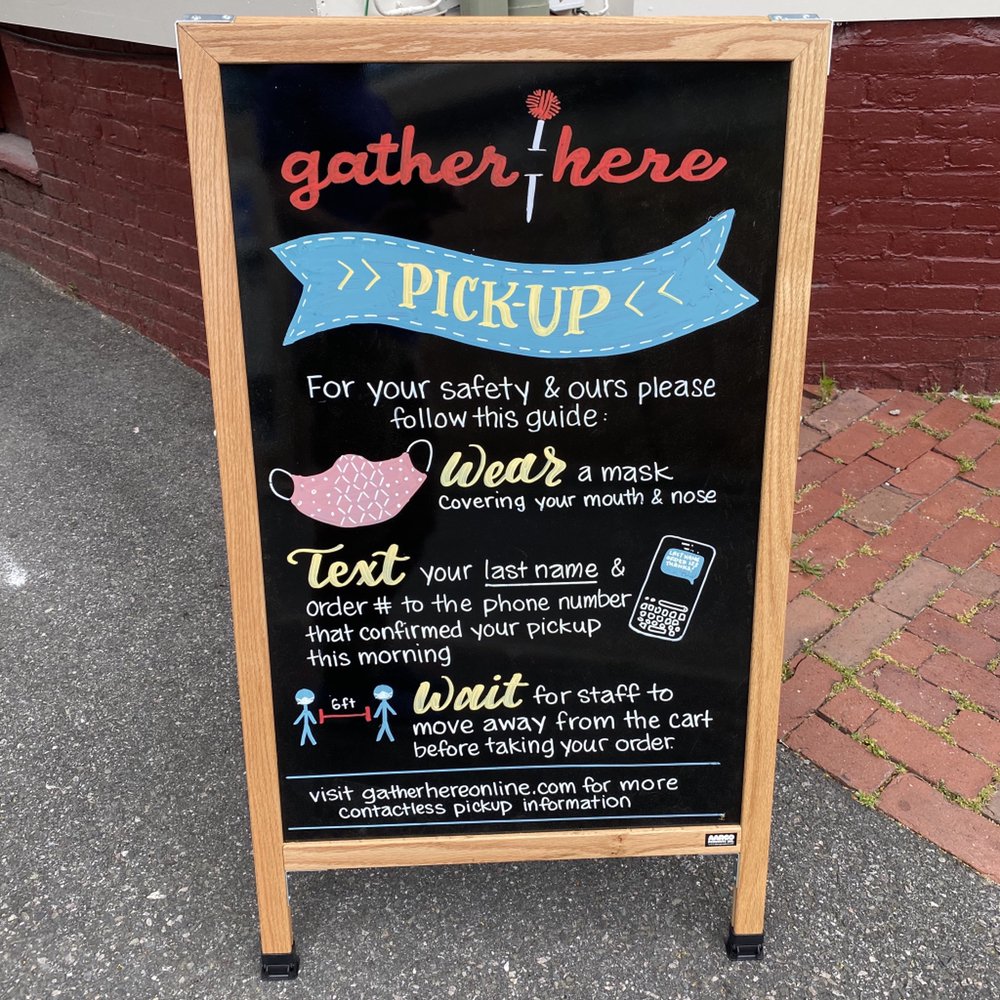 gather here
>> PICK-UP <<
For your safety & ours please
follow this guide:
Wear a mask
Covering your mouth & nose
Text your last name &
order # to the phone number
that confirmed your pickup
this morning
LAST NAME
ORDER 123
THANKS!
6ft
Wait for staff to
move away from the cart
before taking your order.
visit gatherhereonline.com for more
contactless pickup information
AARCO